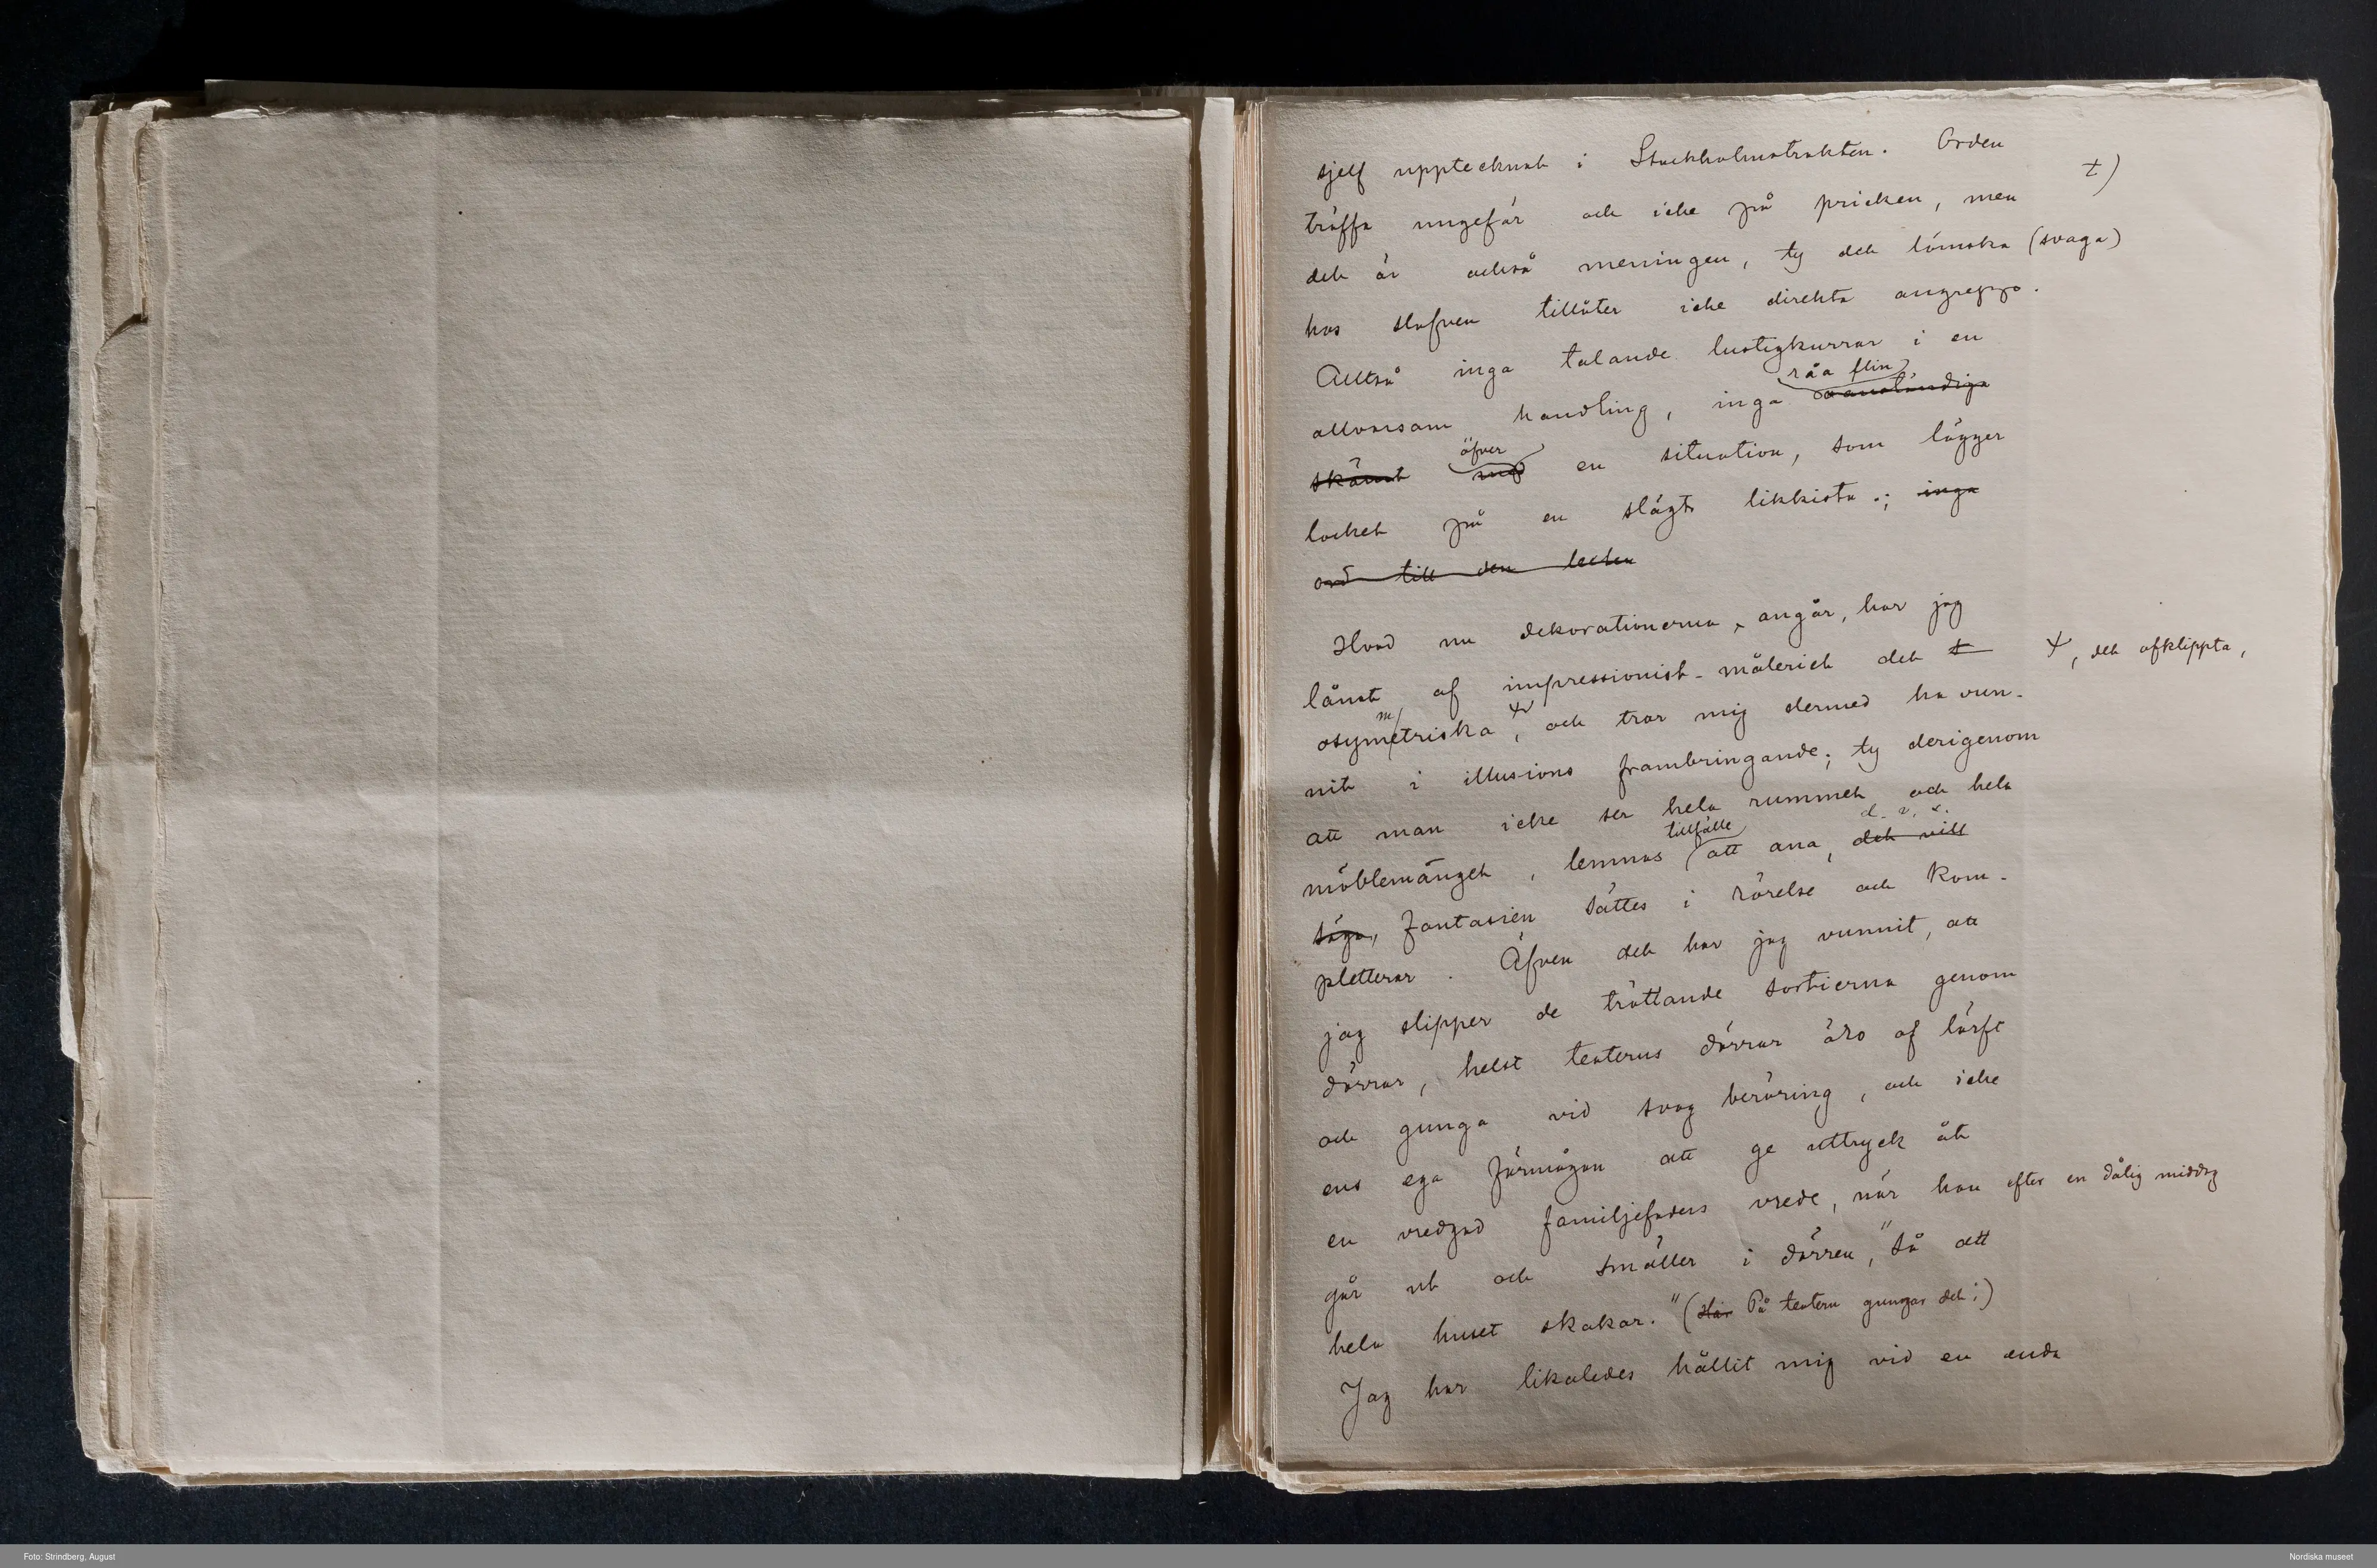 sjelf upptecknat i Stockholmstrakten. Orden
träffa ungefär och icke på pricken, men ±)
det är också meningen, ty det lömska (svaga)
hos slafven tillåter icke direkta angrepp.
Alltså inga talande lustigkurrar i en
råa flin
allvarsam handling, inga oanständiga
öfver
skämt med en situation, som lägger
locket på en slägts likkista.; inga
ord till den
Hvad nu dekorationerna, angår, har jag
lånat af impressionist-måleriet det ±, det afklippta,
m/
asymetriska, och tror mig dermed ha vun-
nit i illusions frambringande; ty derigenom
att man icke ser hela rummet och hela
tillfälle d. v. s.
möblemanget, lemnas att ana, det vill
säga, fantasien sättes i rörelse och kom-
pletterar. Äfven det har jag vunnit, att
jag slipper de tröttande sortierna genom
dörrar, helst teaterns dörrar äro af lärft
och gunga vid svag beröring, och icke
ens ega förmågan att ge uttryck åt
en vredgad familjefaders vrede, när han efter en dålig middag
går ut och smäller i dörren, "så att
hela huset skakar." (Här På teatern gungar det!)
Jag har likaledes hållit mig vid en enda
Foto: Strindberg, August
Nordiska museet